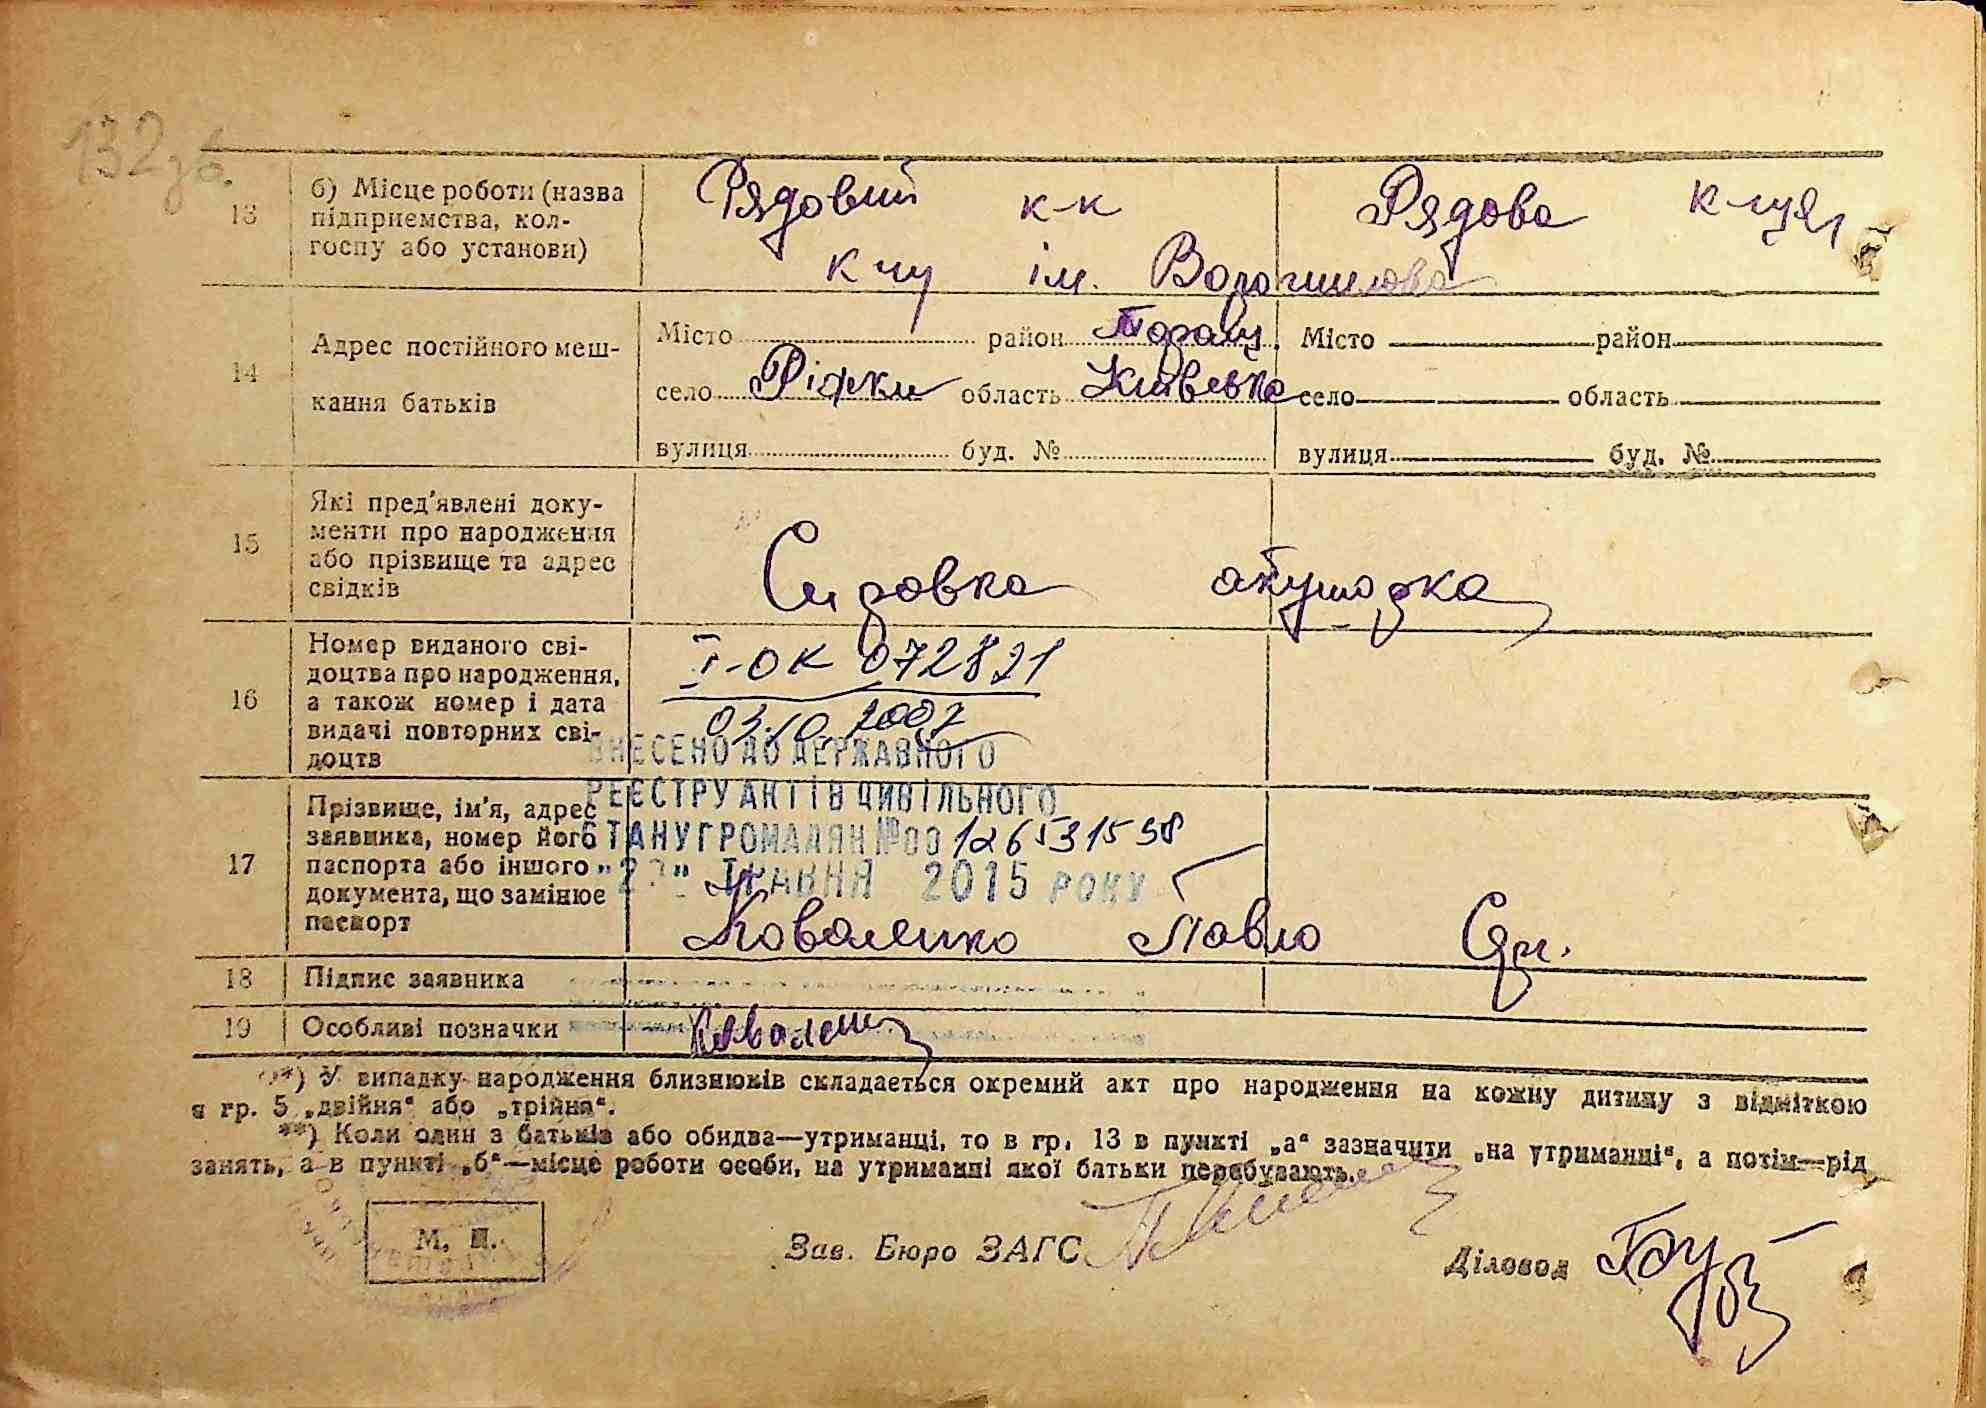 132 зв.
13
б) Місце роботи (назва
підприємства, кол-
госпу або установи)
Рядовий к-к
к-пу ім. Ворошилова
Рядова
14
Адрес постійного меш-
кання батьків
Місто район
село Ріжки область Київська
вулиця буд. №
Місто район
село область
вулиця буд. №
15
Які пред'явлені доку-
менти про народження
або прізвище та адрес
свідків
акушорка
16
Номер виданого сві-
доцтва про народження,
а також номер і дата
видачі повторних сві-
доцтв
І-ОК 072821
2007
ВНЕСЕНО ДО ДЕРЖАВНОГО
РЕЄСТРУ АКТІВ ЦИВІЛЬНОГО
СТАНУ ГРОМАДЯН №00126531598
ТРАВНЯ 2015 РОКУ
17
Прізвище, ім'я, адрес
заявника, номер його
паспорта або іншого
документа, що замінює
паспорт
Коваленко Павло
18
Підпис заявника
19
Особливі позначки
*) У випадку народження близнюків складається окремий акт про народження на кожну дитину з відміткою
в гр. 5 „двійня“ або „трійня“.
**) Коли один з батьків або обидва—утриманці, то в гр. 13 в пункті „а“ зазначити „на утриманні“, а потім—рід
занять, а в пункті „б“—місце роботи особи, на утриманні якої батьки перебувають.
М. П.
Зав. Бюро ЗАГС
Діловод